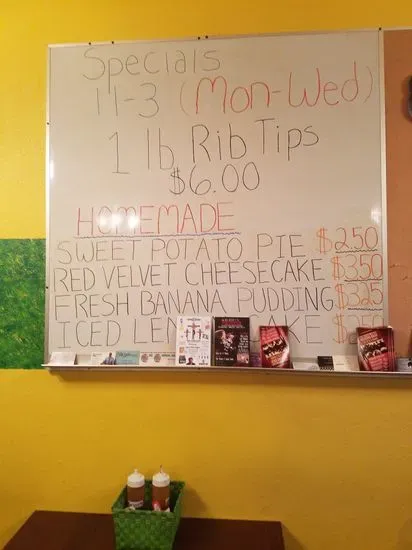 Specials
11-3 (Mon-Wed)
1 lb Rib Tips
$6.00
HOMEMADE
SWEET POTATO PIE $2.50
RED VELVET CHEESECAKE $3.50
FRESH BANANA PUDDING $3.25
ICED CAKE